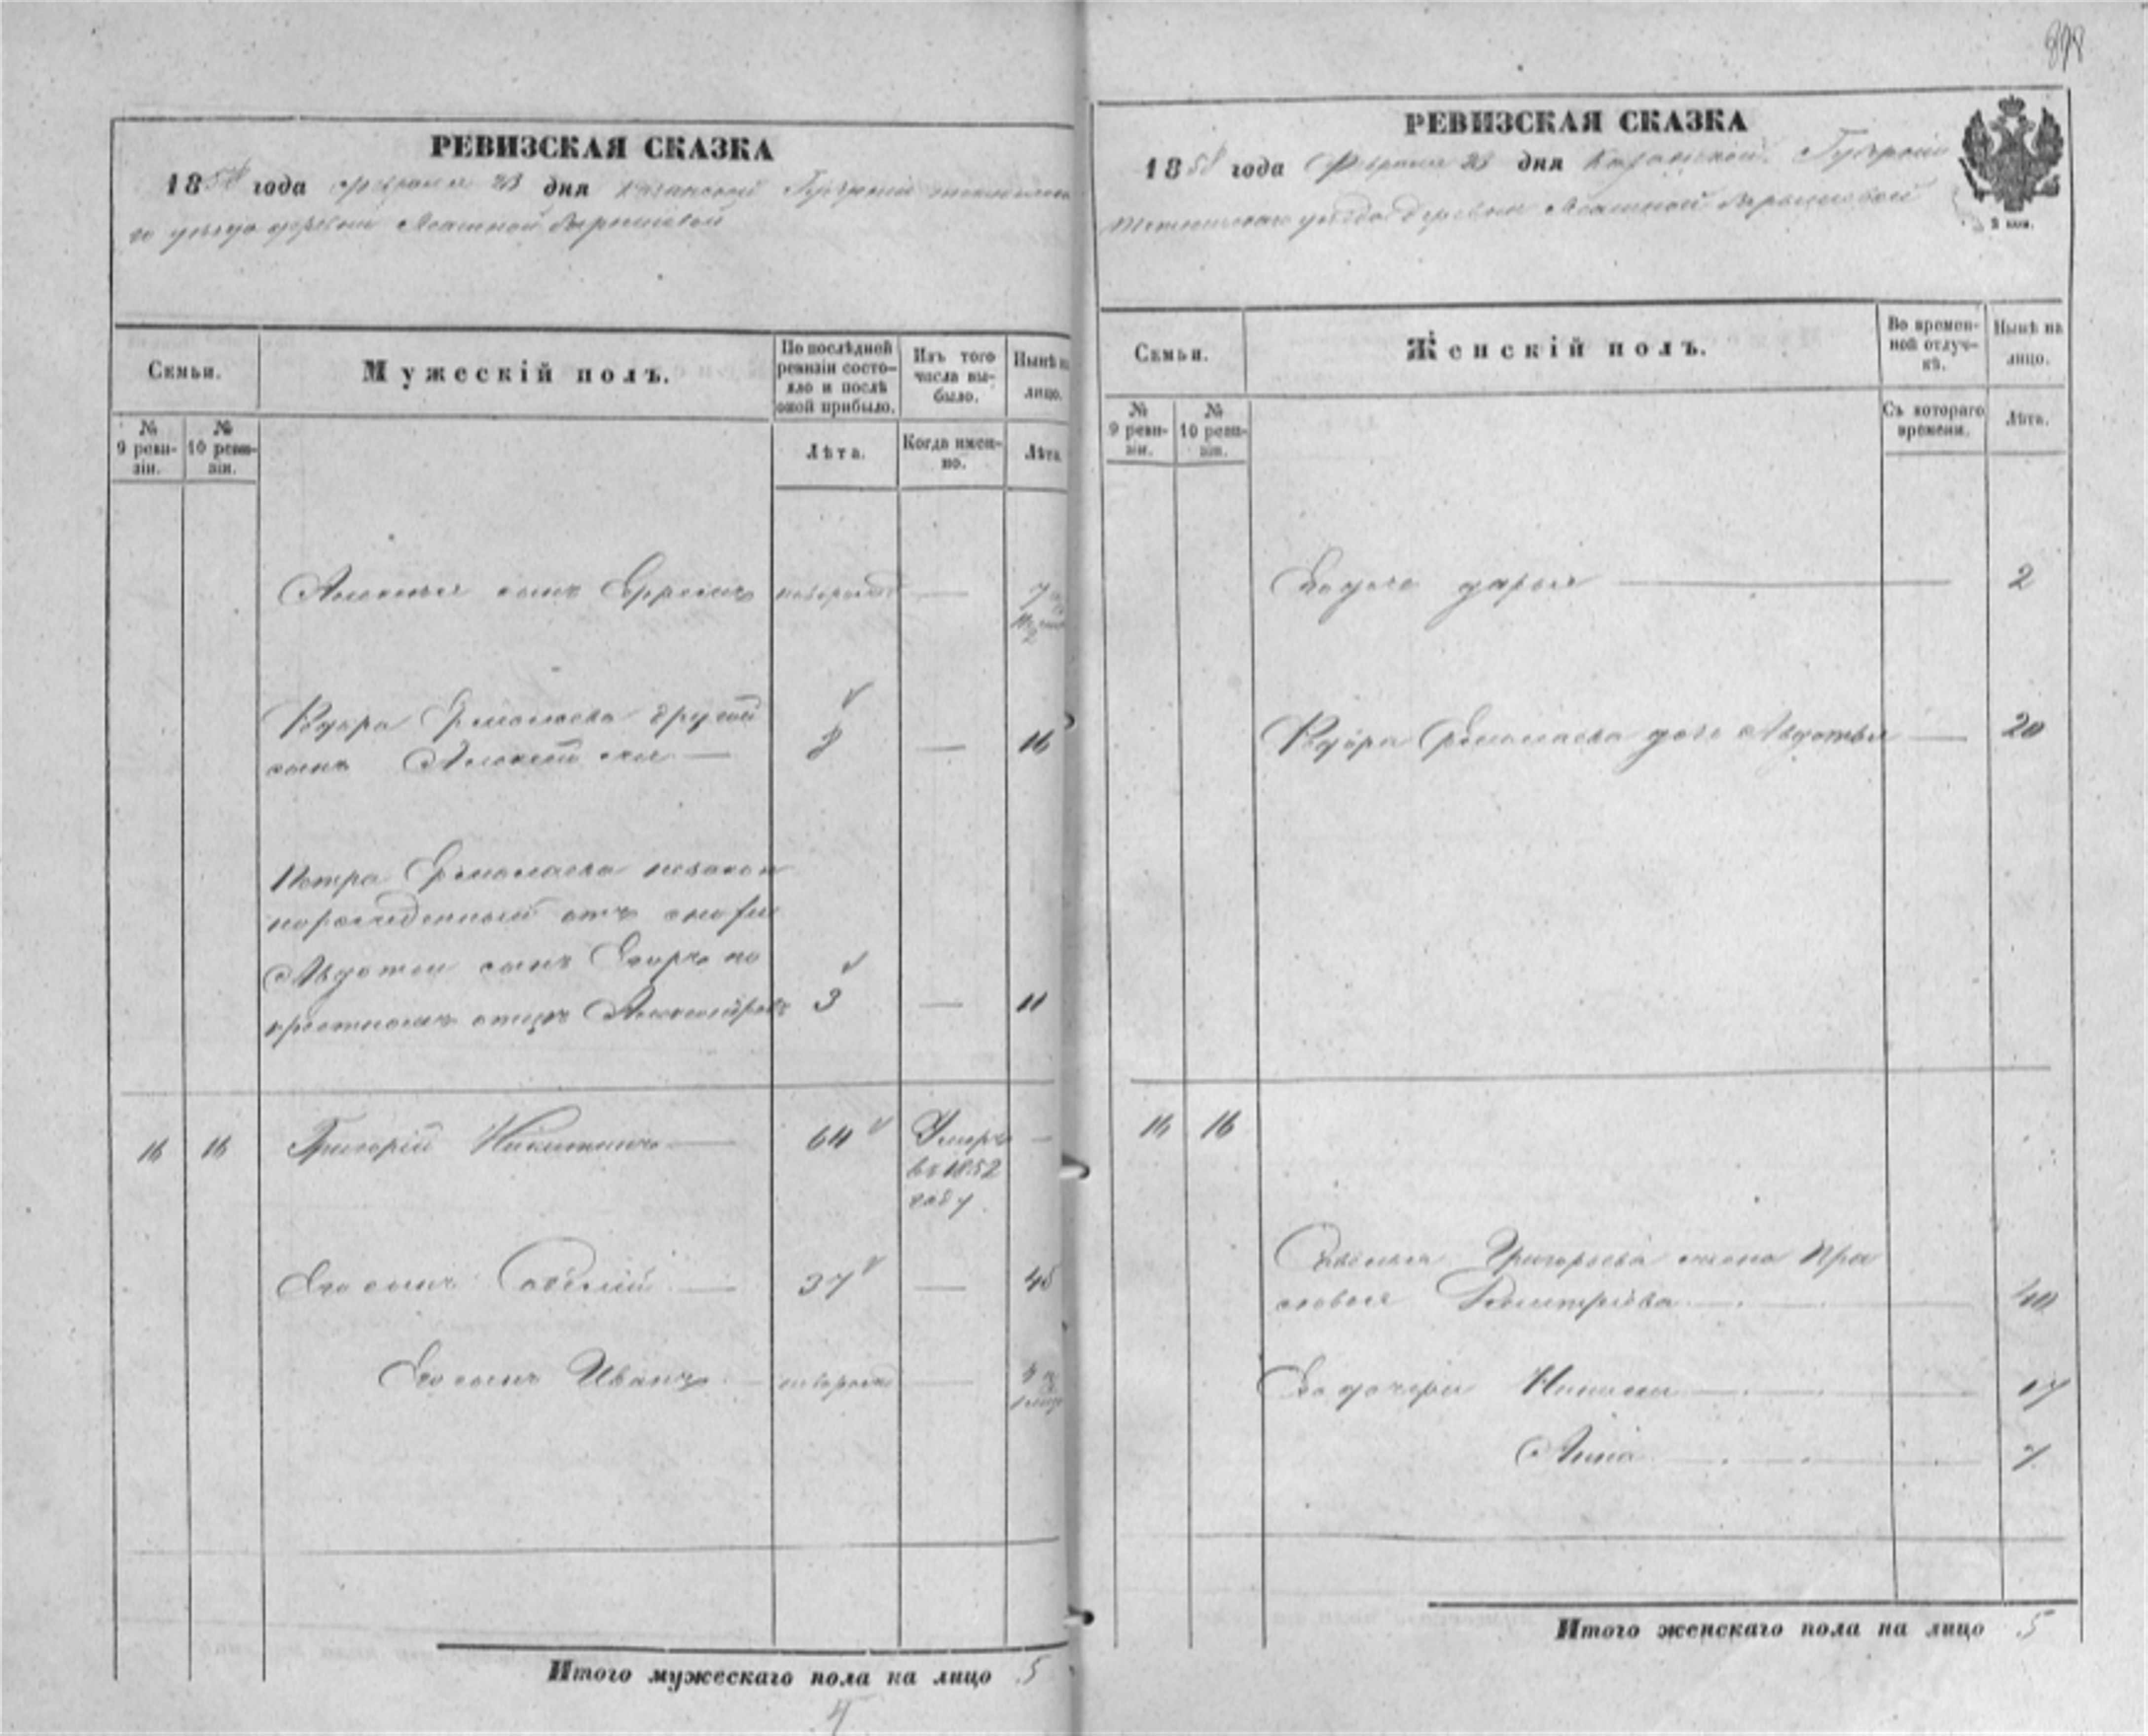 898
РЕВИЗСКАЯ СКАЗКА
1858 года Февраля 23 дня Казанской Губернiи
го уѣзда деревни Ясашной
Семьи.
Мужескiй полъ.
По послѣдней ревизiи состояло и послѣ оной прибыло.
Изъ того числа выбыло.
Нынѣ на лицо.
№ 9 ревизiи.
№ 10 ревизiи.
Лѣта.
Когда именно.
Лѣта.
Алексѣя сынъ Ефремъ —
Ѳедора Ермолаева другой 8 — 16
сынъ Алексѣй
Петра Ермолаева незакон
норожденный отъ
Авдотьи сынъ Егоръ по
крестному отцу 3 — 11
16 16 Григорiй Никитинъ — 64 Умеръ —
въ 1852
году
Его сынъ Савелiй — 37 — 45
Его сынъ Иванъ — —
Итого мужескаго пола на лицо 5
РЕВИЗСКАЯ СКАЗКА
1858 года Февраля 23 дня Казанской Губернiи
уѣзда Деревни Ясашной
2 коп.
Семьи.
Женскiй полъ.
Во временной отлучкѣ.
Нынѣ на лицо.
№ 9 ревизiи.
№ 10 ревизiи.
Съ котораго времени.
Лѣта.
Его дочь Дарья — 2
Ѳедора Ермолаева дочь Авдотья — 20
16 16
Савелья Григорьева жена Пра
сковья Дмитрiева — 40
Его дочери — 17
Анна — 7
Итого женскаго пола на лицо 5